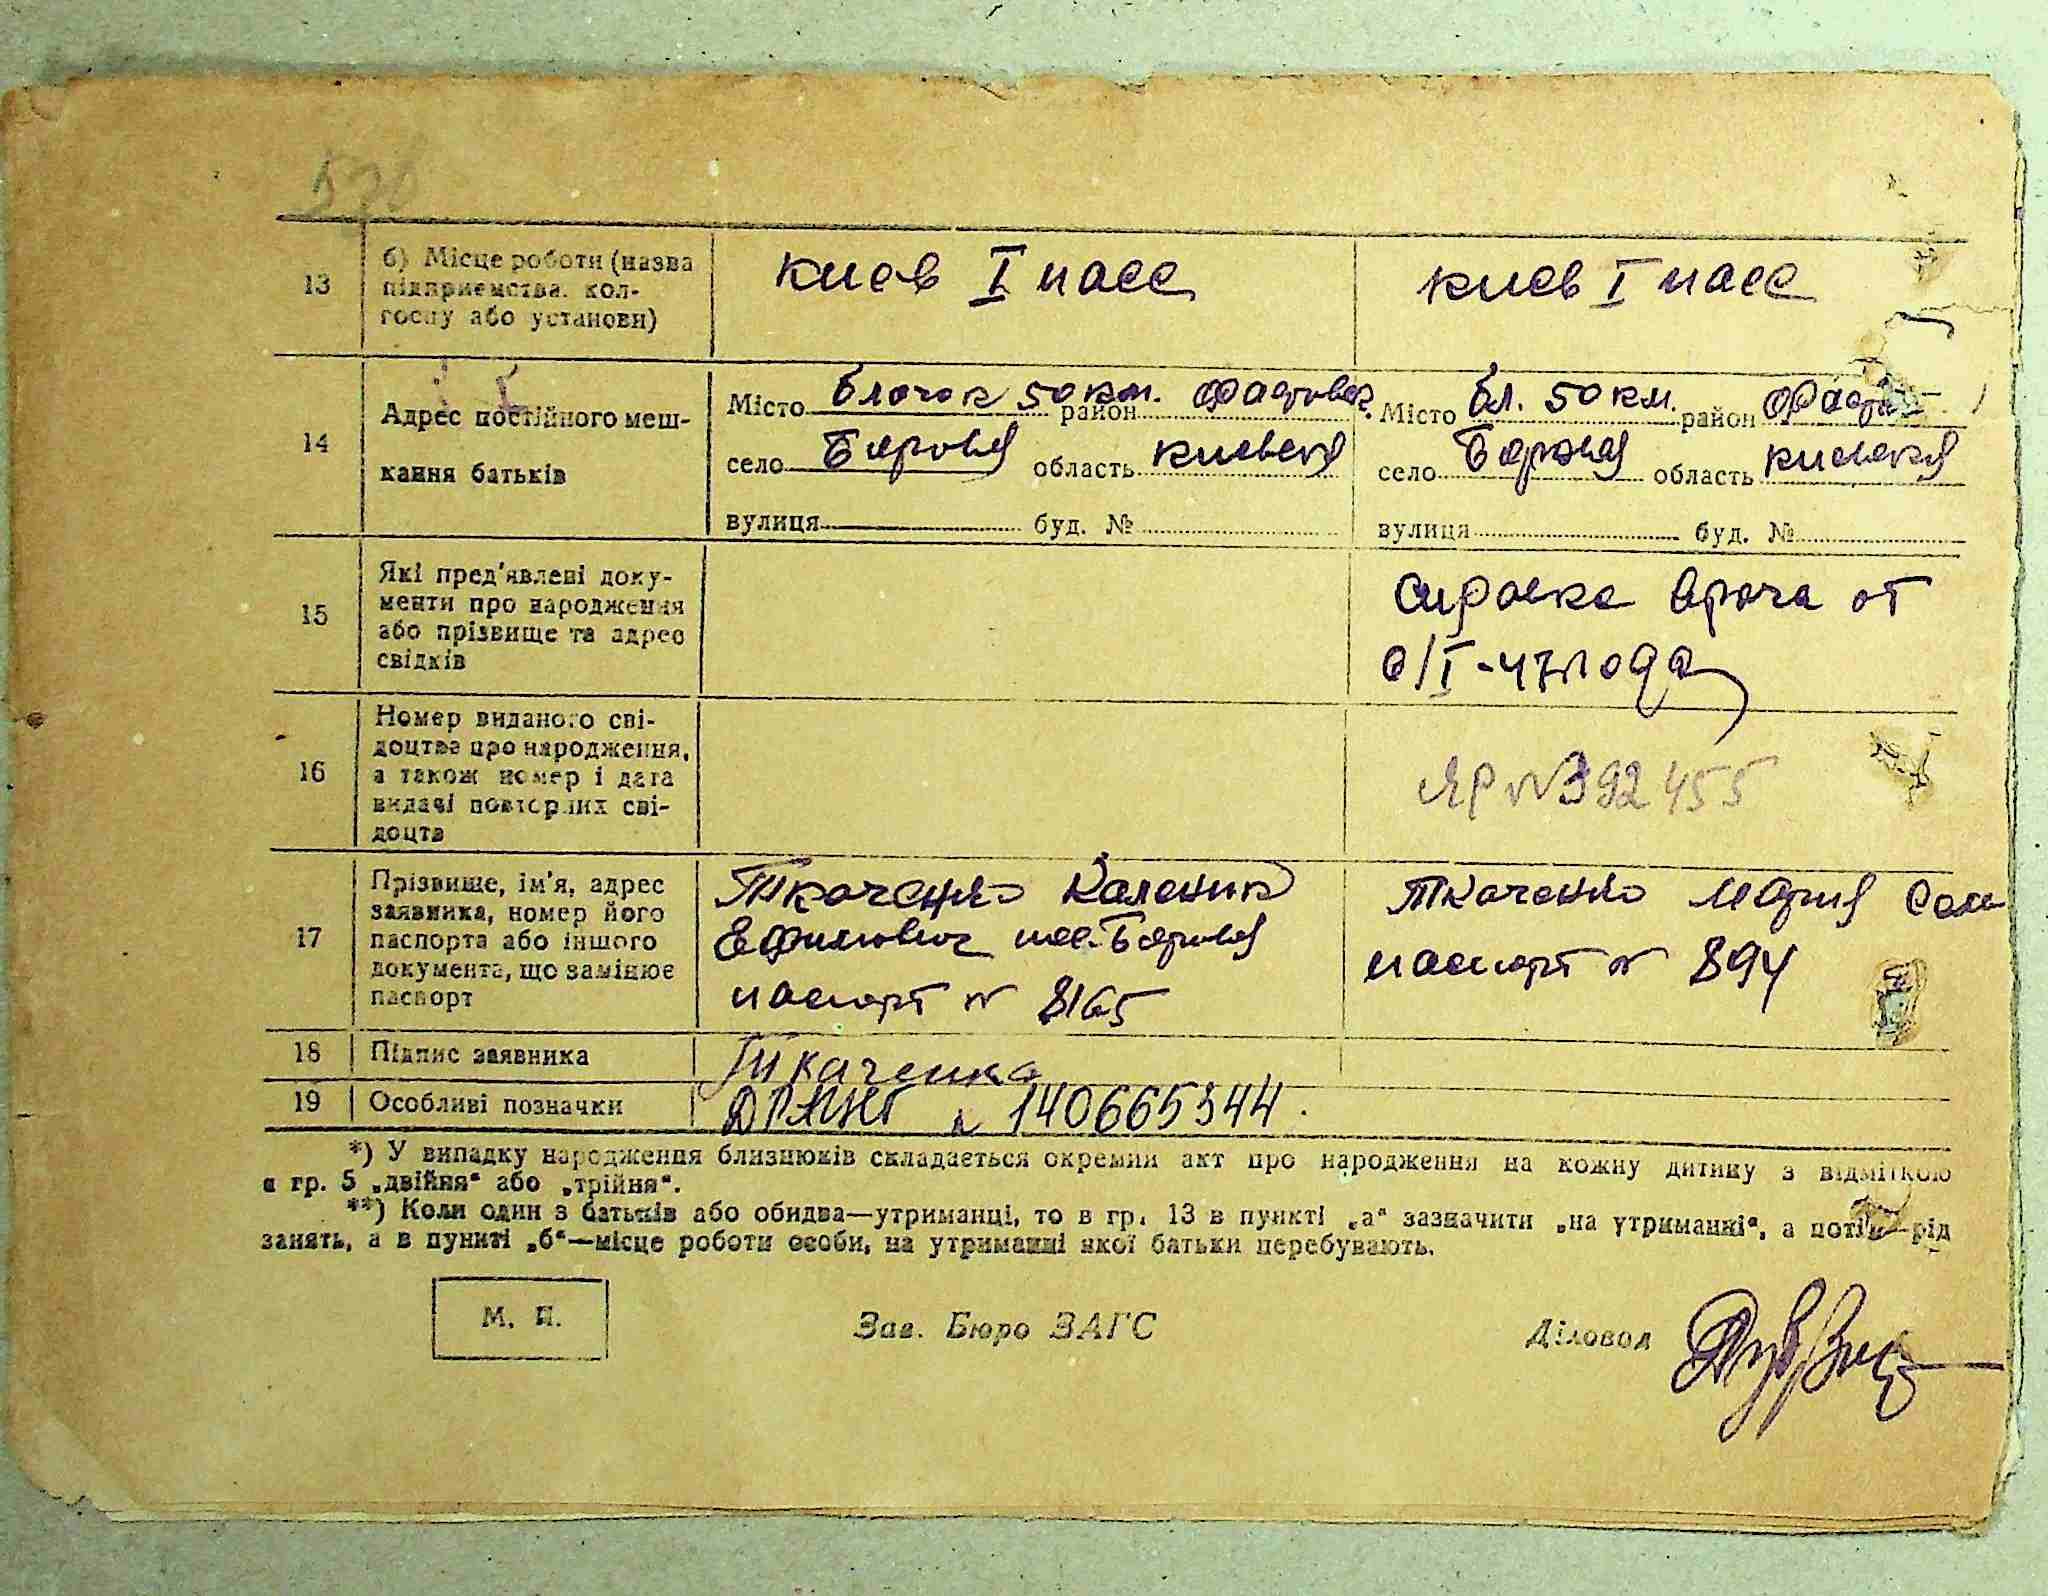 13
б) Місце роботи (назва
підприємства, кол-
госпу або установи)
Киев I пасс
Киев I пасс
14
Адрес постійного меш-
кання батьків
Місто блочок 50 км. район Фастовск.
село Боровая область Киевская
вулиця буд. №
Місто бл. 50 км. район Фаст
село Боровая область Киевская
вулиця буд. №
15
Які пред'явлені доку-
менти про народження
або прізвище та адрес
свідків
справка врача от
6/I-47 года
16
Номер виданого сві-
доцтва про народження,
а також номер і дата
видачі повторних сві-
доцтв
ЯР № 392455
17
Прізвище, ім'я, адрес
заявника, номер його
паспорта або іншого
документа, що замінює
паспорт
Ткаченко Каленик
Ефимович пос. Боровая
паспорт № 8165
Ткаченко Мария Сам
паспорт № 894
18
Підпис заявника
Ткаченко
19
Особливі позначки
№ 140665344.
*) У випадку народження близнюків складається окремий акт про народження на кожну дитину з відміткою
в гр. 5 „двійня“ або „трійня“.
**) Коли один з батьків або обидва—утриманці, то в гр. 13 в пункті „а“ зазначити „на утриманні“, а потім—рід
занять, а в пункті „б“—місце роботи особи, на утриманні якої батьки перебувають.
М. П.
Зав. Бюро ЗАГС
Діловод